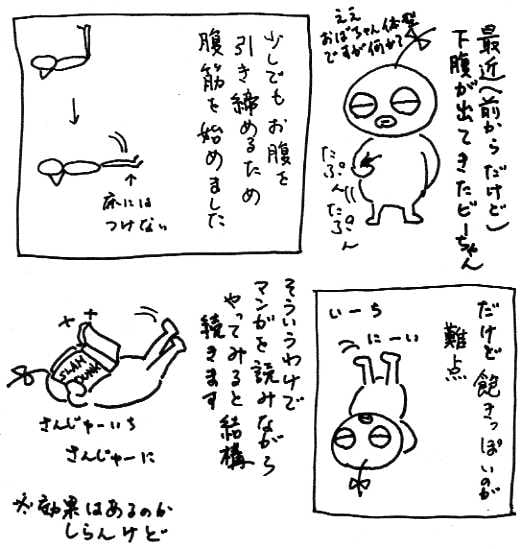 最近(前からだけど)
下腹が出てきたビーちゃん
ええ
おばちゃん体型
ですが何か?
たぷん
たぷん
少しでもお腹を
引き締めるため
腹筋を始めました
床には
つけない
だけど飽きっぽいのが
難点
いーち
にーい
そういうわけで
マンガを読みながら
やってみると結構
続きます
SLAM
DUNK
さんじゅーいち
さんじゅーに
※効果はあるのか
しらんけど